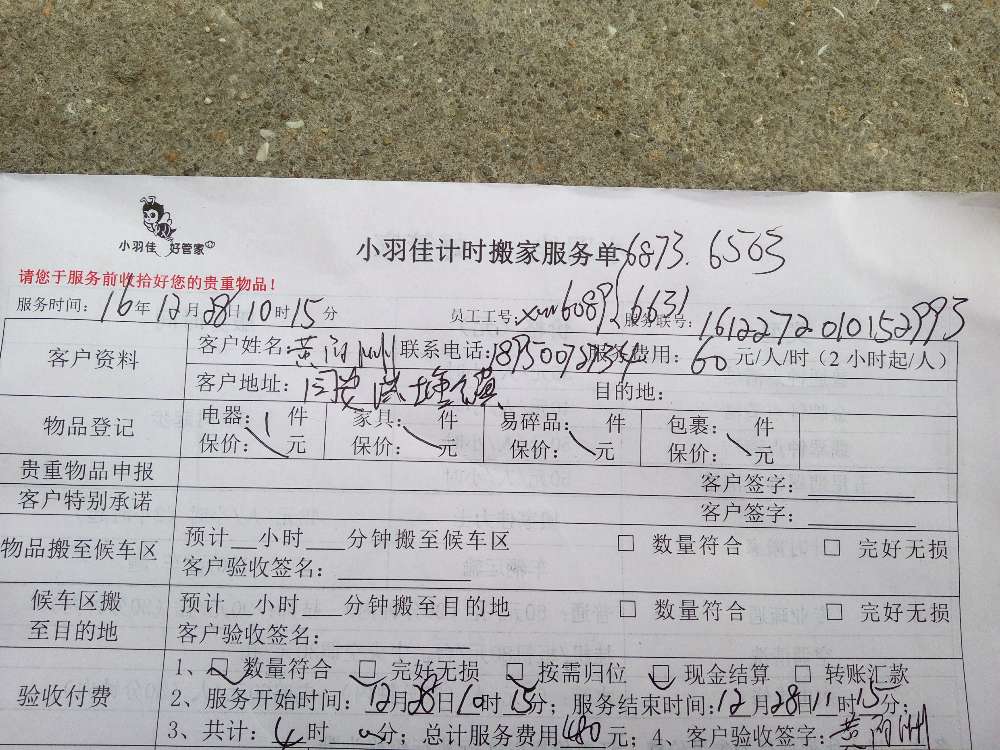 小羽佳 好管家
小羽佳计时搬家服务单 6873. 6503
请您于服务前收拾好您的贵重物品！
服务时间：16年12月28日10时15分 员工工号：6089 6631 服务联号：1612272010152993
客户资料 客户姓名：黄 联系电话： 服务费用：60元/人/时（2小时起/人）
客户地址： 镇 目的地：
物品登记 电器： 件 家具： 件 易碎品： 件 包裹： 件
保价： 元 保价： 元 保价： 元 保价： 元
贵重物品申报 客户签字：
客户特别承诺 客户签字：
物品搬至候车区 预计 小时 分钟搬至候车区 □ 数量符合 □ 完好无损
客户验收签名：
候车区搬至目的地 预计 小时 分钟搬至目的地 □ 数量符合 □ 完好无损
客户验收签名：
验收付费 1、□ 数量符合 □ 完好无损 □ 按需归位 □ 现金结算 □ 转账汇款
2、服务开始时间：12月28日10时15分；服务结束时间：12月28日11时15分；
3、共计：4时 分；总计服务费用480元；4、客户验收签字：黄